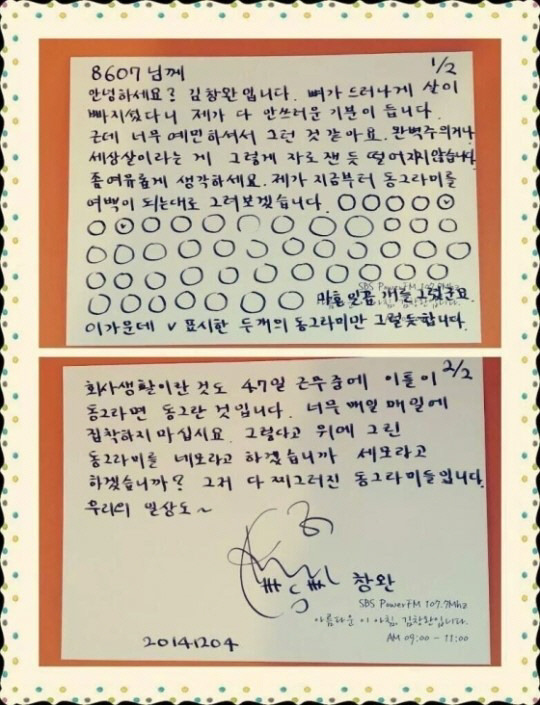 1/2
8607님께
안녕하세요? 김창완입니다. 뼈가 드러나게 살이
빠지셨다니 제가 다 안쓰러운 기분이 듭니다.
근데 너무 예민하셔서 그런 것 같아요. 완벽주의거나
세상살이라는 게 그렇게 자로 잰 듯 떨어지지않습니다
좀 여유롭게 생각하세요. 제가 지금부터 동그라미를
여백이 되는대로 그려보겠습니다.
SBS PowerFM 107.7Mhz
마흔일곱 개를 그렸군요.
이 가운데 v 표시한 두개의 동그라미만 그럴듯합니다.
2/2
회사생활이란것도 47일 근무중에 이틀이
동그라면 동그란 것입니다. 너무 매일 매일에
집착하지 마십시요. 그렇다고 위에 그린
동그라미를 네모라고 하겠습니까 세모라고
하겠습니까? 그저 다 찌그러진 동그라미들입니다.
우리의 일상도~
창완
SBS PowerFM 107.7Mhz
아름다운 이 아침, 김창완입니다.
AM 09:00 - 11:00
20141204